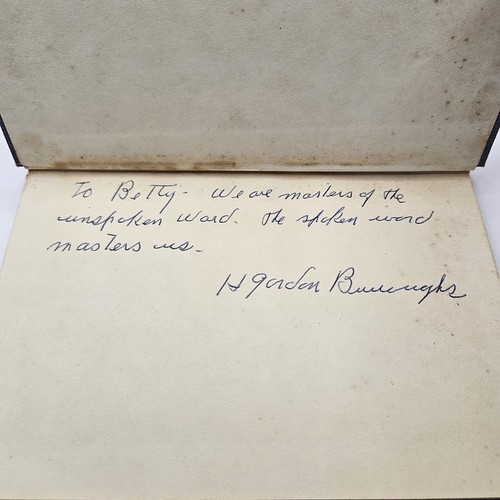 To Betty - We are masters of the
unspoken word. The spoken word
masters us -
H Gordon Burroughs